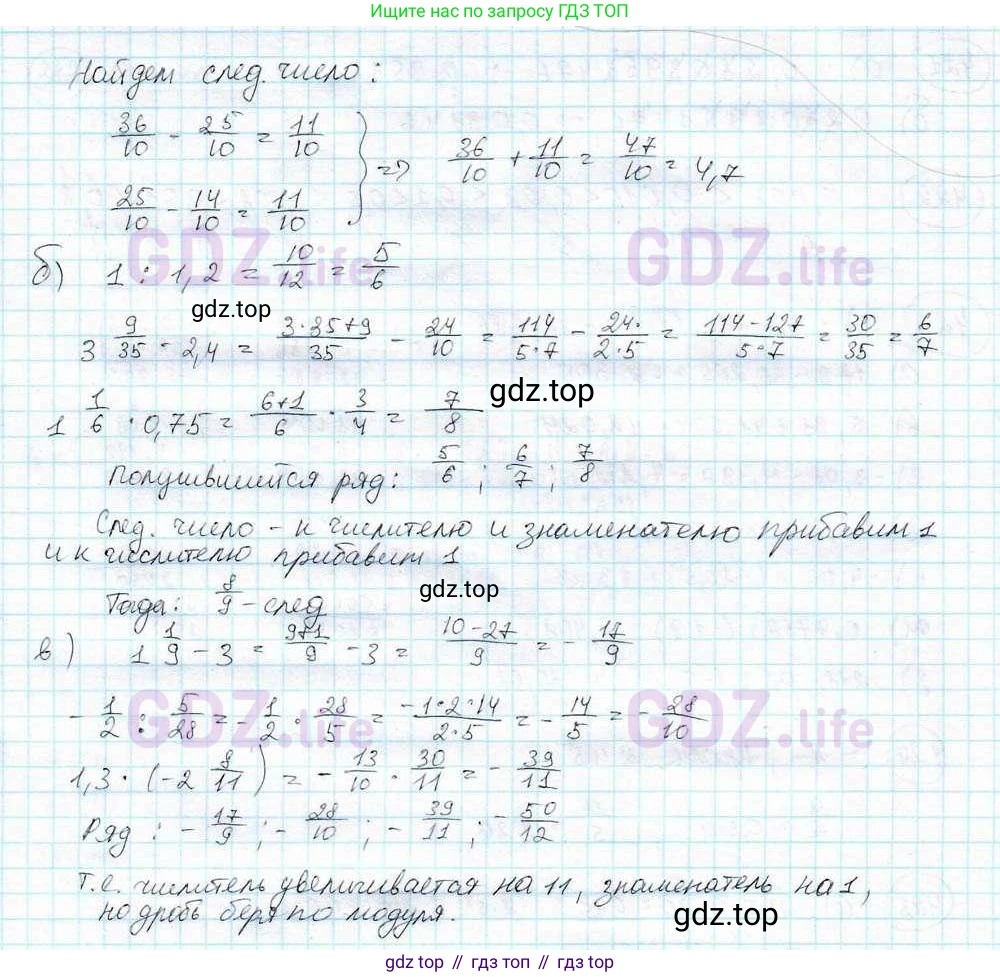 Ищите нас по запросу ГДЗ ТОП
Найдем след. число:
36/10 - 25/10 = 11/10
25/10 - 14/10 = 11/10
=> 36/10 + 11/10 = 47/10 = 4,7
GDZ.life GDZ.life
б) 1 : 1,2 = 10/12 = 5/6
gdz.top
3 9/35 - 2,4 = 3·35+9/35 - 24/10 = 114/5·7 - 24·/2·5 = 114-127/5·7 = 30/35 = 6/7
gdz.top
1 1/6 · 0,75 = 6+1/6 · 3/4 = 7/8
Получившийся ряд: 5/6 ; 6/7 ; 7/8
След. число - к числителю и знаменателю прибавим 1
и к числителю прибавим 1
gdz.top
Тогда: 8/9 - след
в) 1 1/9 - 3 = 9+1/9 - 3 = 10-27/9 = - 17/9
GDZ.life GDZ.life
- 1/2 : 5/28 = - 1/2 · 28/5 = -1·2·14/2·5 = - 14/5 = - 28/10
1,3 · (-2 8/11) = - 13/10 · 30/11 = - 39/11
Ряд : - 17/9 ; - 28/10 ; - 39/11 ; - 50/12
т.е. числитель увеличивается на 11, знаменатель на 1,
но дробь беря по модуля.
gdz.top
gdz.top // гдз.топ // гдз.top